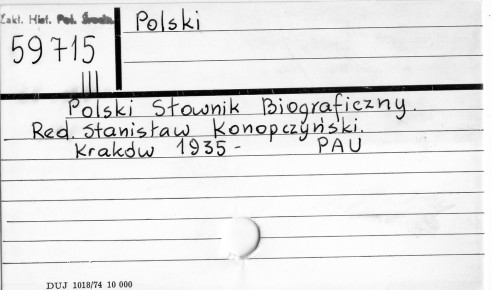 Zakł. Hist. Pol. Średn.
59715
III
Polski
Polski Słownik Biograficzny.
Red. Stanisław Konopczyński.
Kraków 1935- PAU
DUJ 1018/74 10 000